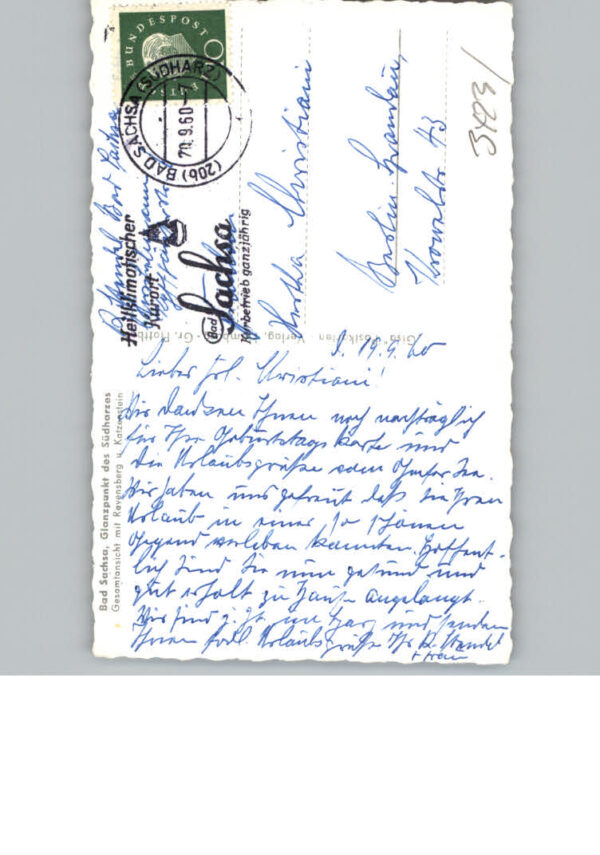 DEUTSCHE BUNDESPOST
10
(20b) BAD SACHSA (SÜDHARZ)
20.9.60-
Heilklimatischer
Kurort
Bad Sachsa
Kurbetrieb ganzjährig
Bad Sachsa
Hertha Christiani
Berlin-Spandau
43
3423/
Verlag, Hamburg - Gr. Flottb
Bad Sachsa, Glanzpunkt des Südharzes
Gesamtansicht mit Ravensberg u. Katzenstein
D. 19.9.60
Liebes Frl. Christiani!
Wir danken Ihnen noch nachträglich
für Ihre Geburtstagskarte und
die Urlaubsgrüße vom
Wir haben uns gefreut daß Sie Ihren
Urlaub in einer so schönen
Gegend verleben konnten. Hoffent-
lich sind Sie nun gesund und
gut erholt zu Hause angelangt.
Wir sind z. Zt. im Harz und senden
Ihnen frdl. Urlaubsgrüße Ihr
+ Frau